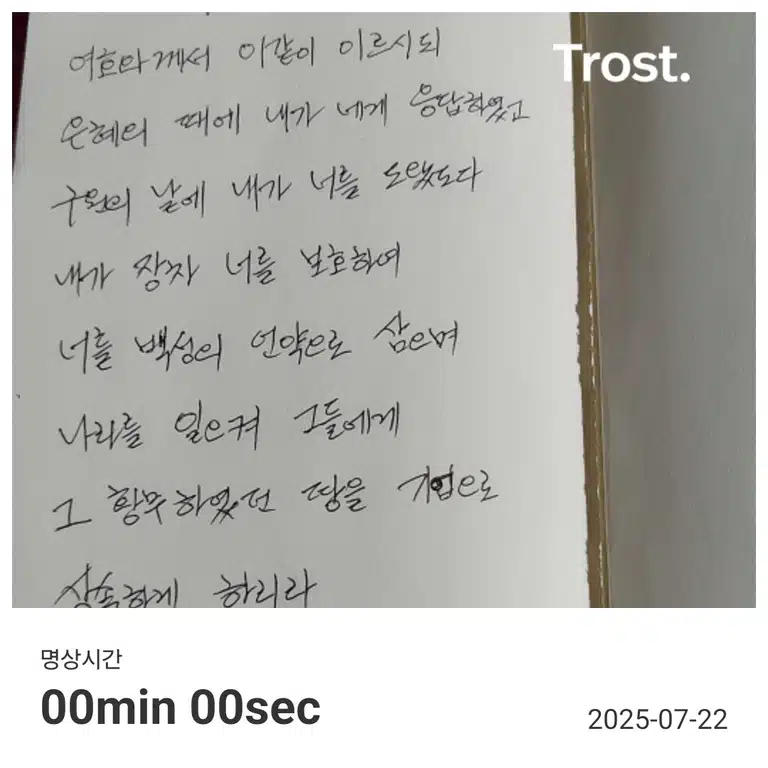 여호와께서 이같이 이르시되
Trost.
은혜의 때에 내가 네게 응답하였고
구원의 날에 내가 너를 도왔도다
내가 장차 너를 보호하여
너를 백성의 언약으로 삼으며
나라를 일으켜 그들에게
그 황무하였던 땅을 기업으로
상속하게 하리라
명상시간
00min 00sec
2025-07-22